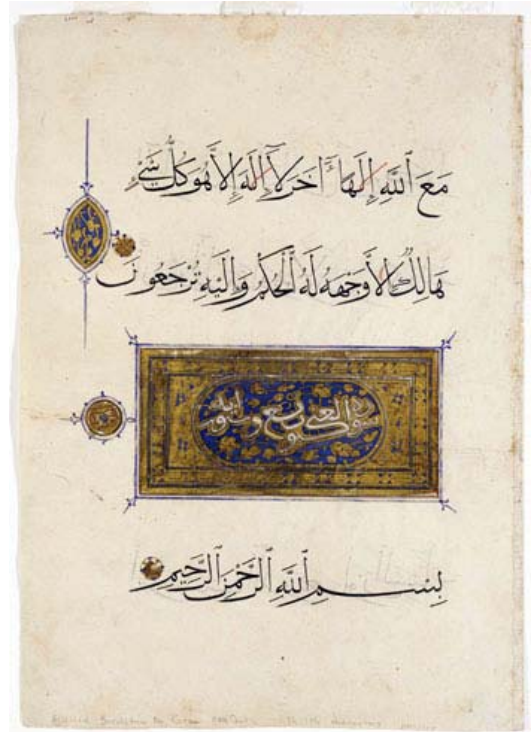 مَعَ ٱللَّهِ إِلَٰهًا ءَاخَرَ لَآ إِلَٰهَ إِلَّا هُوَ كُلُّ شَىْءٍ
هَالِكٌ إِلَّا وَجْهَهُ لَهُ ٱلْحُكْمُ وَإِلَيْهِ تُرْجَعُونَ
سورة العنكبوت تسع وستون آية
بِسْمِ ٱللَّهِ ٱلرَّحْمَٰنِ ٱلرَّحِيمِ